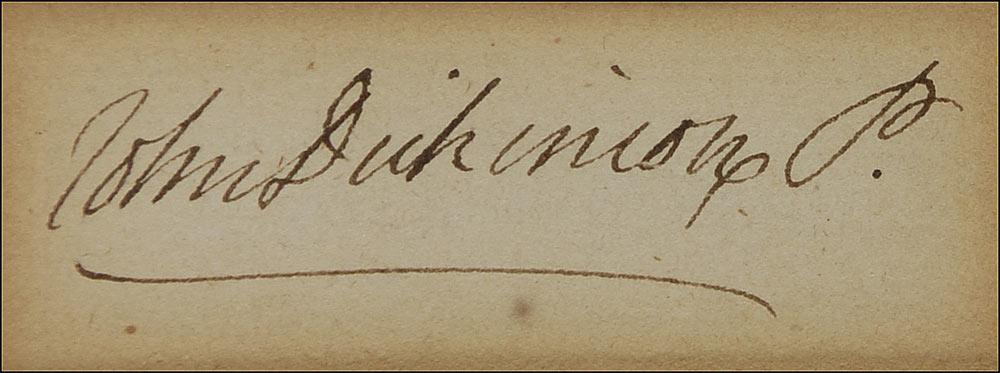 John Dickinson P.